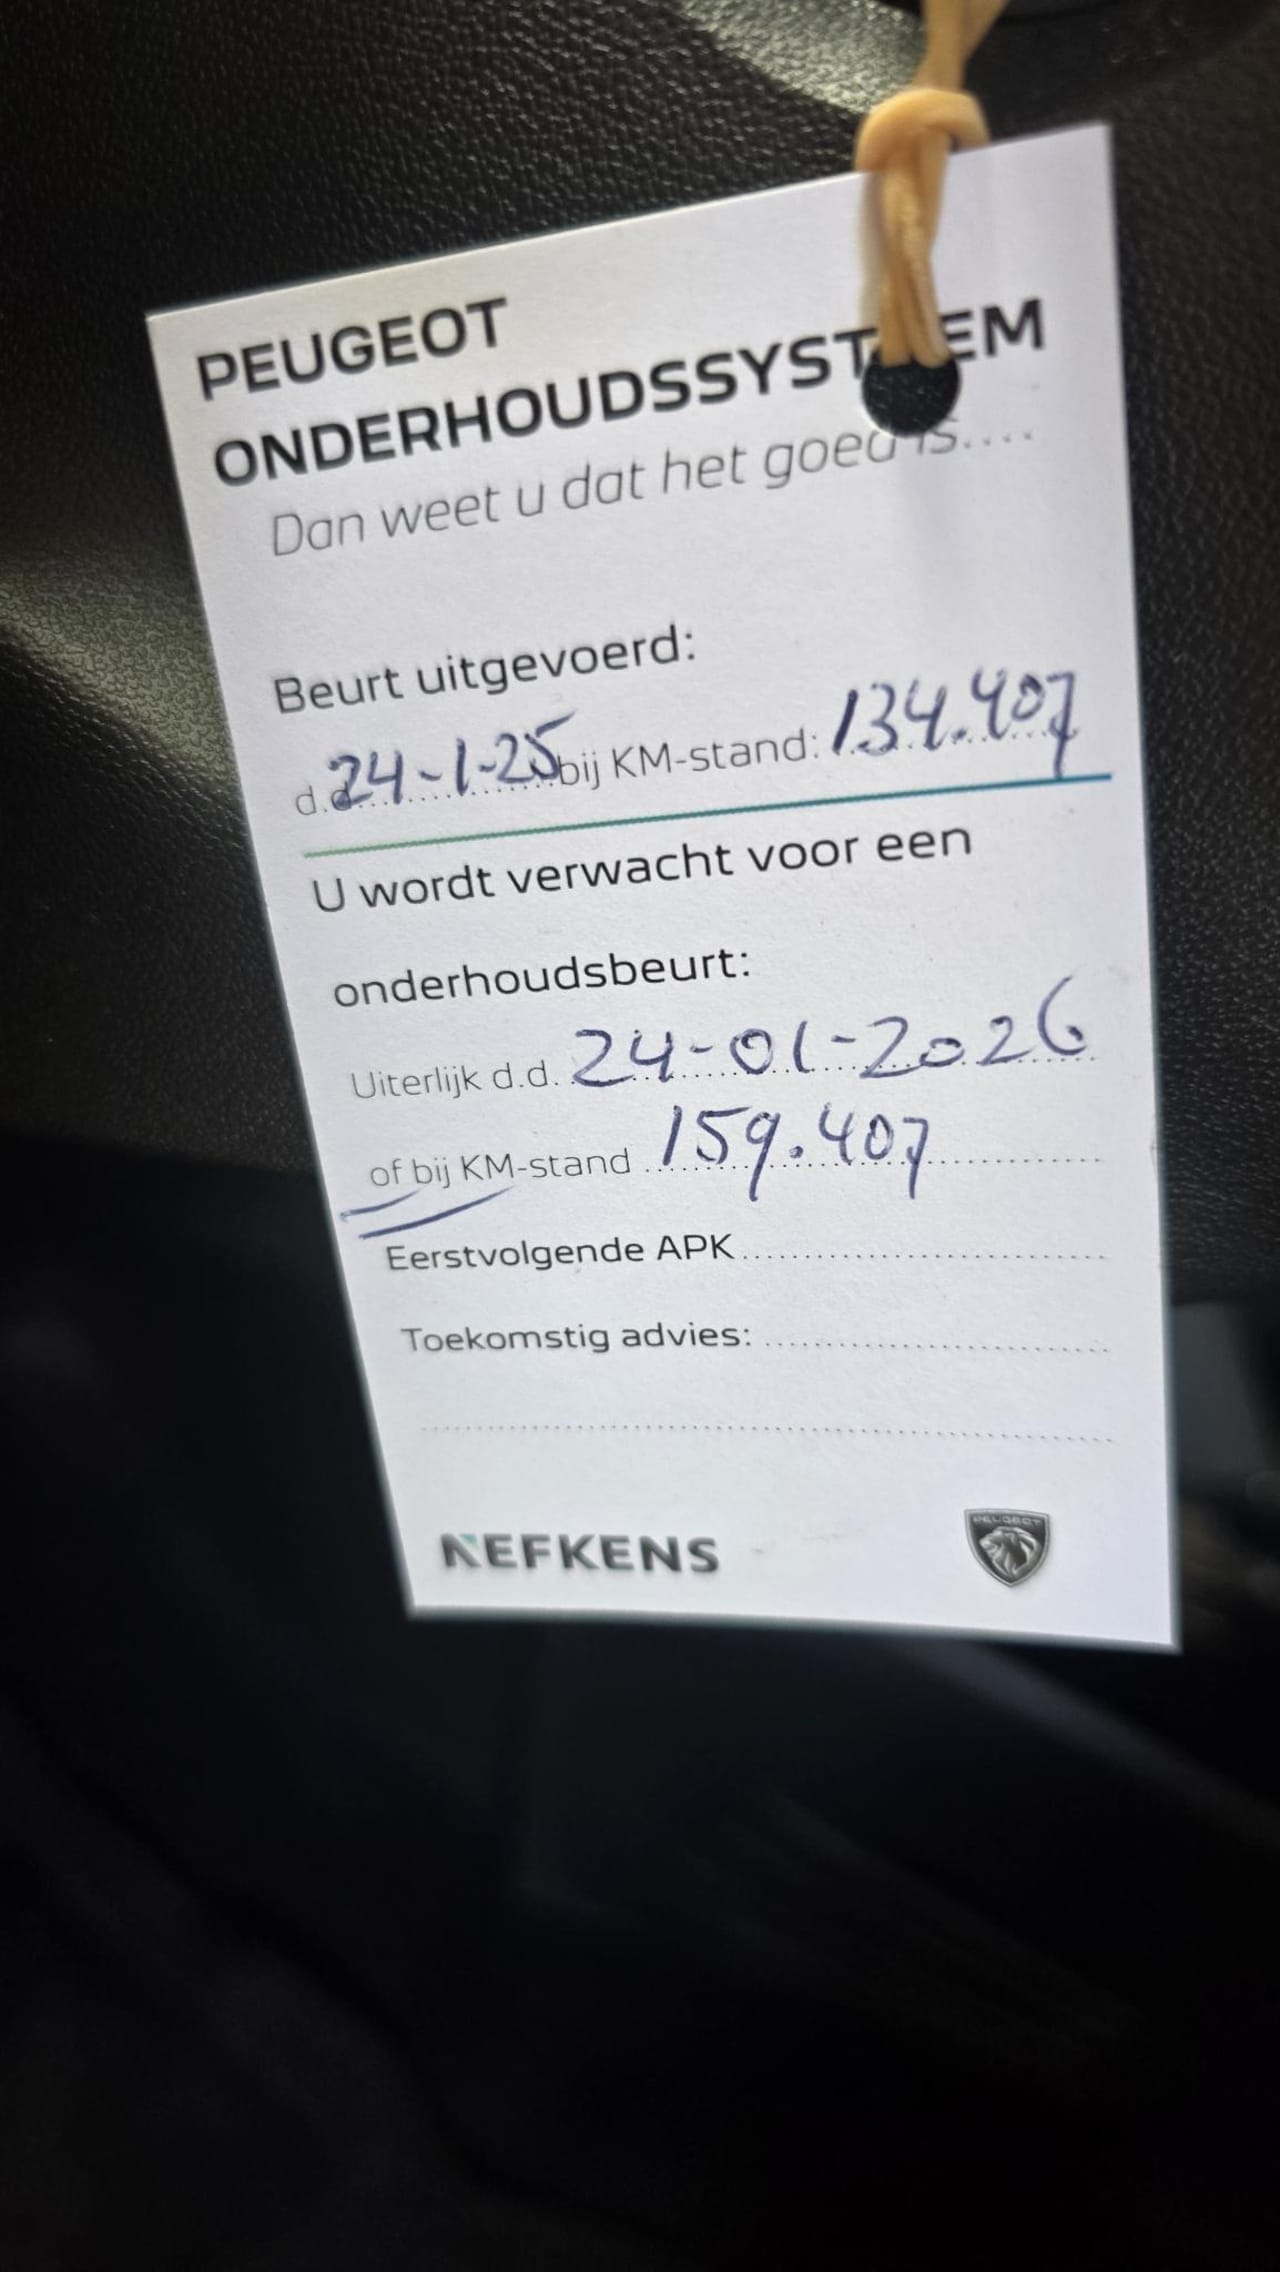 PEUGEOT
ONDERHOUDSSYSTEEM
Dan weet u dat het goed is....
Beurt uitgevoerd:
d.d. 24-1-25 bij KM-stand: 134.407
U wordt verwacht voor een
onderhoudsbeurt:
Uiterlijk d.d. 24-01-2026
of bij KM-stand 159.407
Eerstvolgende APK
Toekomstig advies:
NEFKENS
PEUGEOT